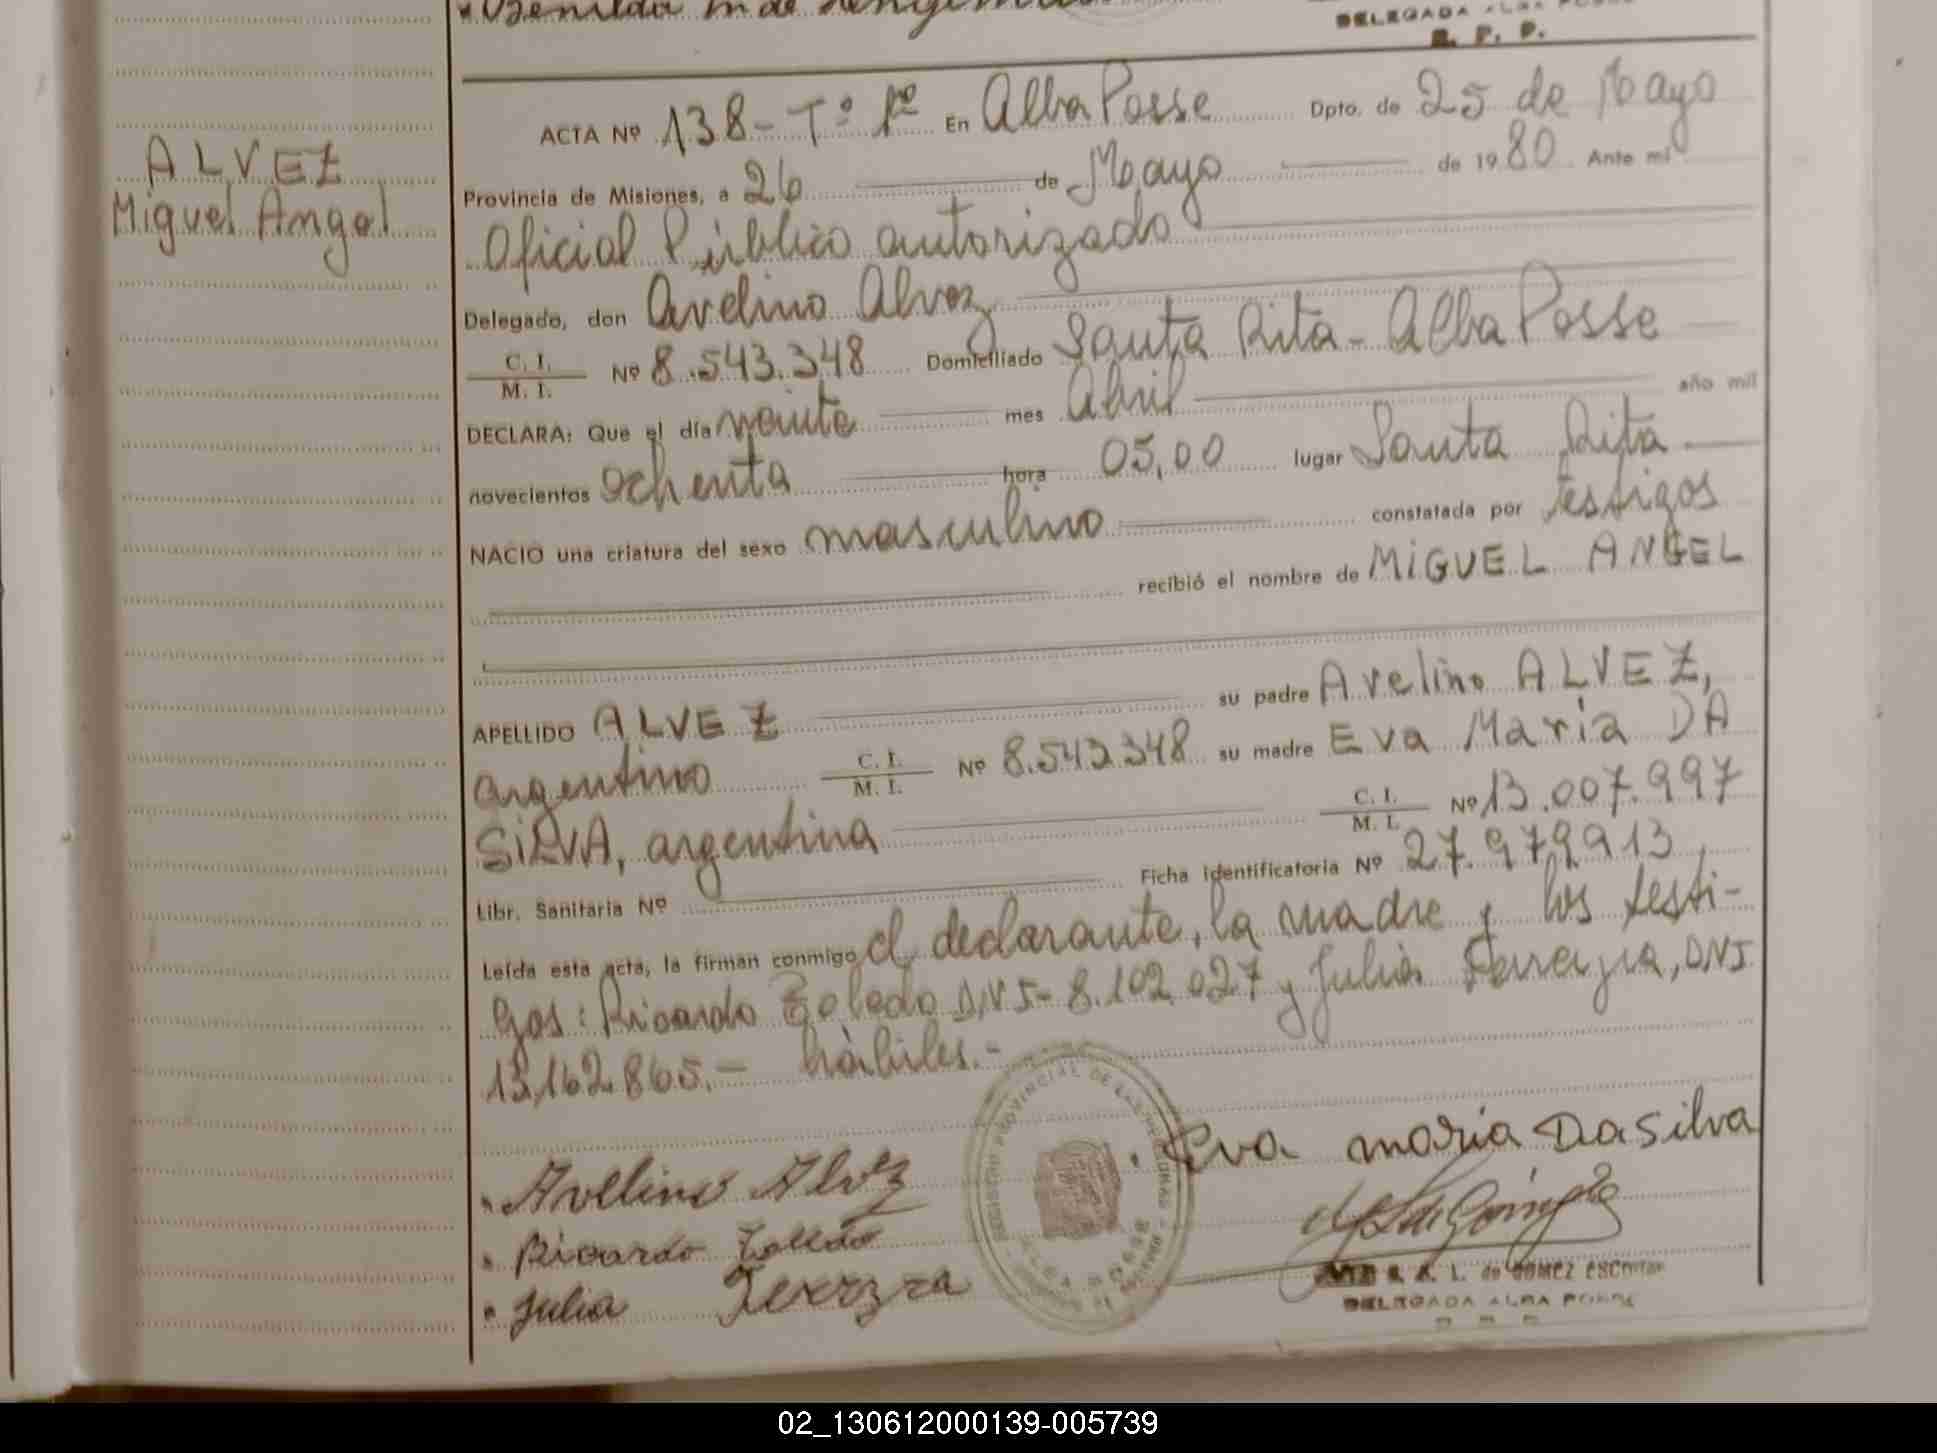 DELEGADA ALBA POSSE
R. P. P.
ALVEZ
Miguel Angel
ACTA Nº 138 - Tº 1º En Alba Posse Dpto. de 25 de Mayo
Provincia de Misiones, a 26 de Mayo de 1980 Ante mi
Oficial Público autorizado
Delegado, don Avelino Alvez
C. I.
M. I. Nº 8.543.348 Domiciliado Santa Rita - Alba Posse
DECLARA: Que el día veinte mes Abril año mil
novecientos ochenta hora 05,00 lugar Santa Rita
NACIO una criatura del sexo masculino constatada por testigos
recibió el nombre de MIGUEL ANGEL
APELLIDO ALVEZ su padre Avelino ALVEZ,
argentino C. I. M. I. Nº 8.543.348 su madre Eva Maria DA
SILVA, argentina C. I. M. I. Nº 13.007.997
Libr. Sanitaria Nº Ficha Identificatoria Nº 27.979.913
Leída esta acta, la firman conmigo el declarante, la madre y los testi-
gos: Ricardo Toledo DNI- 8.102.027 y Julia Ferreyra, DNI.
13,162.865.- hàbiles.-
REGISTRO PROVINCIAL DE LAS PERSONAS
ALBA POSSE
Eva maria Dasilva
Avelino Alvez
Ricardo Toledo
Julia Ferreyra
L. de GOMEZ ESCOBAR
DELEGADA ALBA POSSE
02_130612000139-005739